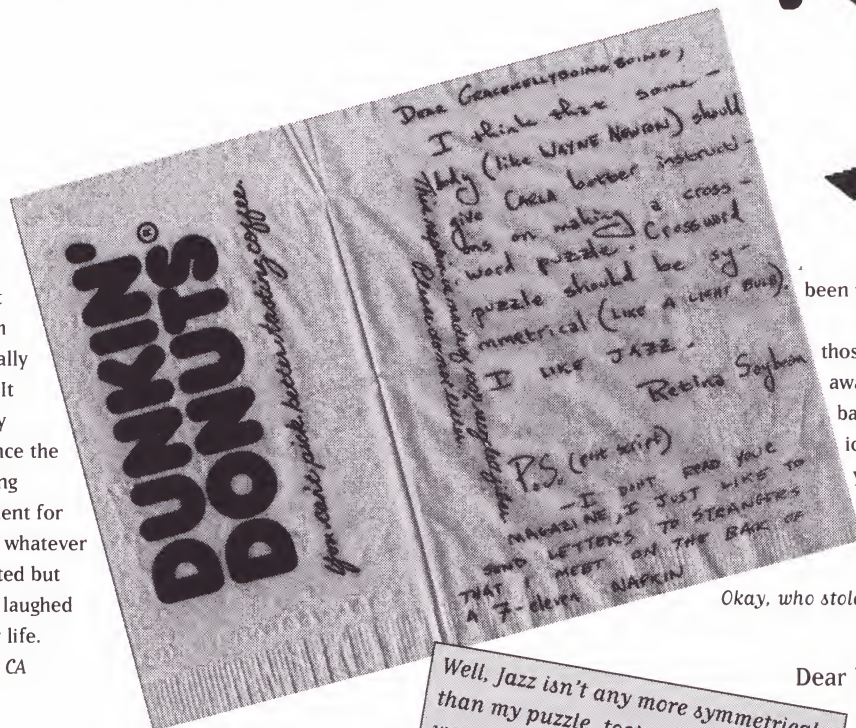 t
n
ally
It
y
nce the
ng
ent for
whatever
ted but
laughed
life.
CA
DUNKIN'
DONUTS®
You can't pick better tasting coffee.
DEAR GRACEKELLYBOINGBOING,
I think that some-
body (like WAYNE NEWTON) should
give CARLA better instructi-
ons on making a cross-
word puzzle. Crossword
puzzle should be sy-
mmetrical (LIKE A LIGHT BULB).
I LIKE JAZZ.
Retina Soybean
P.S. (post script)
—I DON'T READ YOUR
MAGAZINE, I JUST LIKE TO
SEND LETTERS TO STRANGERS
THAT I MEET ON THE BACK OF
A 7-eleven NAPKIN
This napkin is made from recycled
Please do not litter.
been
thos
awa
ba
ic
y
Okay, who stole
Dear
Well, Jazz isn't any more symmetrical
than my puzzle, too